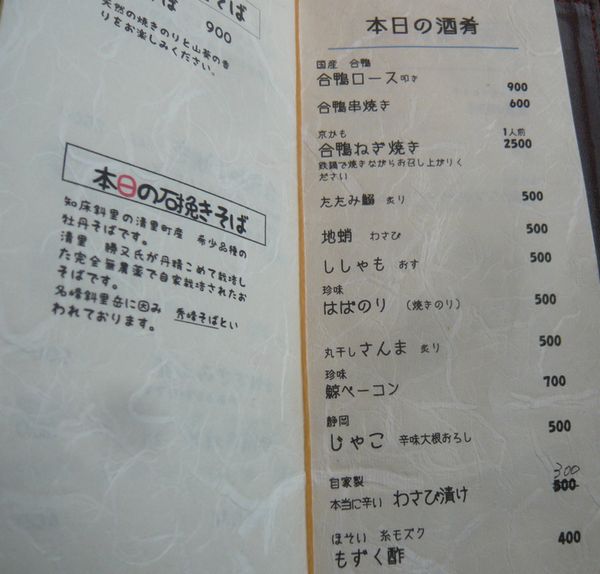 そば
900
天然の焼きのりと山葵の香
りをお楽しみください。
本日の石挽きそば
知床斜里の清里町産 希少品種の
牡丹そばです。
清里 勝又氏が丹精こめて栽培し
た完全無農薬で自家栽培されたお
そばです。
名峰斜里岳に因み 秀峰そばとい
われております。
本日の酒肴
国産 合鴨
合鴨ロース 叩き 900
合鴨串焼き 600
京かも 1人前
合鴨ねぎ焼き 2500
鉄鍋で焼きながらお召し上がりく
ださい
たたみ鰯 炙り 500
地蛸 わさび 500
ししゃも おす 500
珍味
はばのり (焼きのり) 500
丸干しさんま 炙り 500
珍味
鯨ベーコン 700
静岡
じゃこ 辛味大根おろし 500
自家製 300
本当に辛い わさび漬け 500
ほそい 糸モズク 400
もずく酢